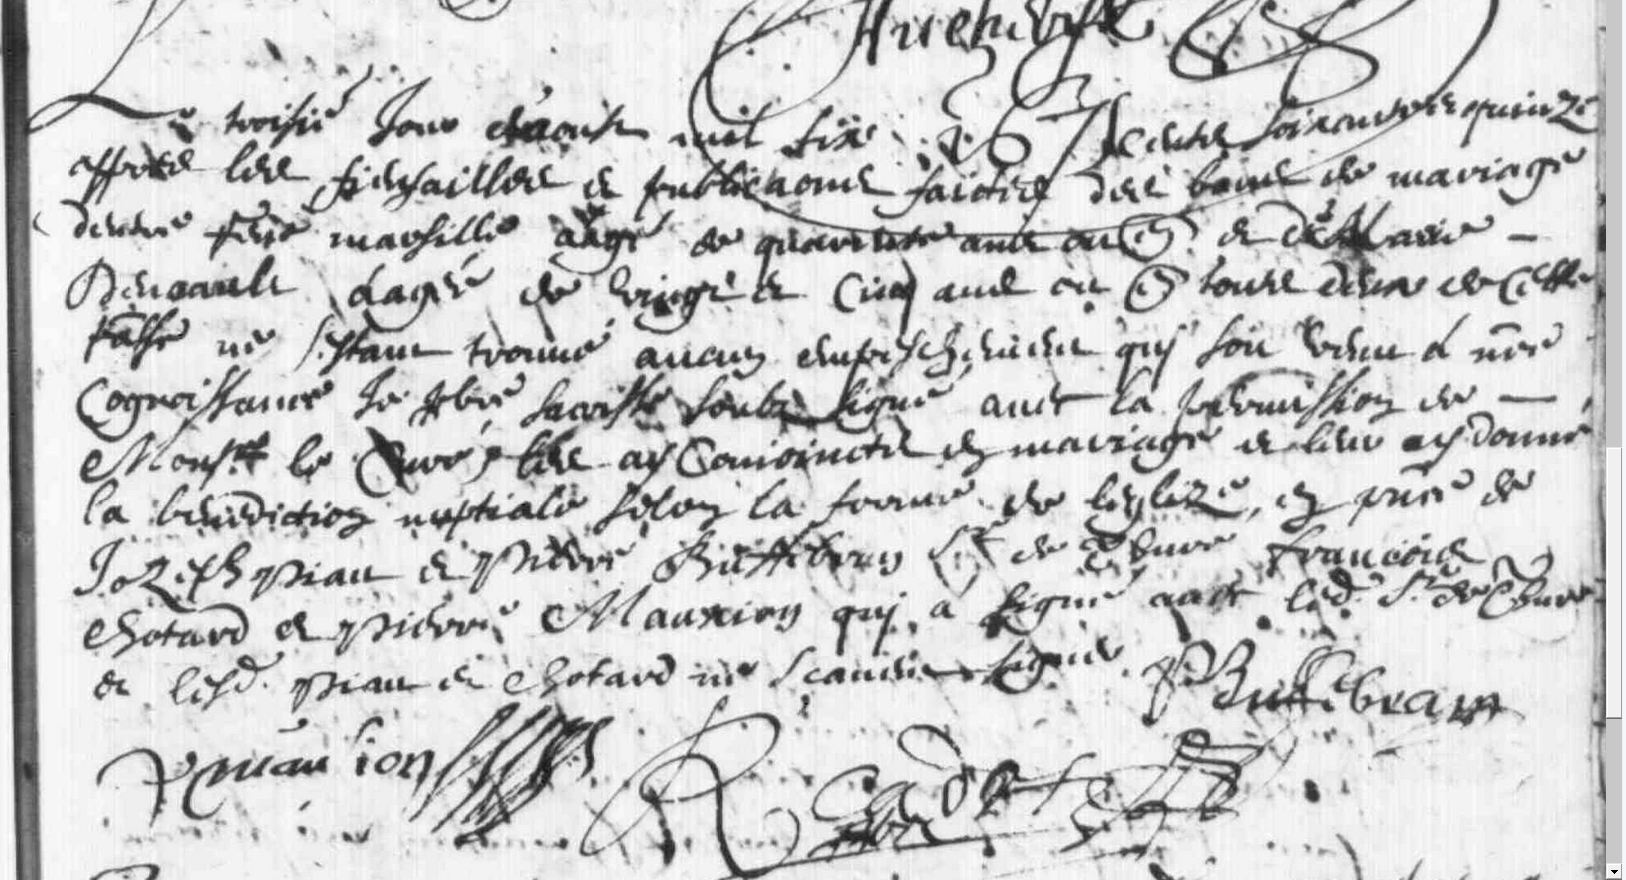 Le troisie Jour daoust mil six Cents soixante et quinze
appres les fiensailles et publicaons faictes des bans de mariage
dentre marsille aagé de quarente ans ou e[n]viron et de Marie
Renault aagée de vingt et Cinq ans ou environ tous deux de Ceste
psse ne sestant trouvé aucun empeschement quy soit venu a nre
Cognoissance Je pbre sacriste soubz signé avec la permission de
Monsr le Curé les ay Conioincts en mariage et leur ay donné
la benediction nuptiale selon la forme de leglize, en pnce de
Jozeph pian et pierre Buffebran Sr de francois
chotard et pierre Mauxion quj a signé avec led. Sr de
et lesd. pian et chotard ne scavent signer PBuffebran
P mausion R Cadet pbre